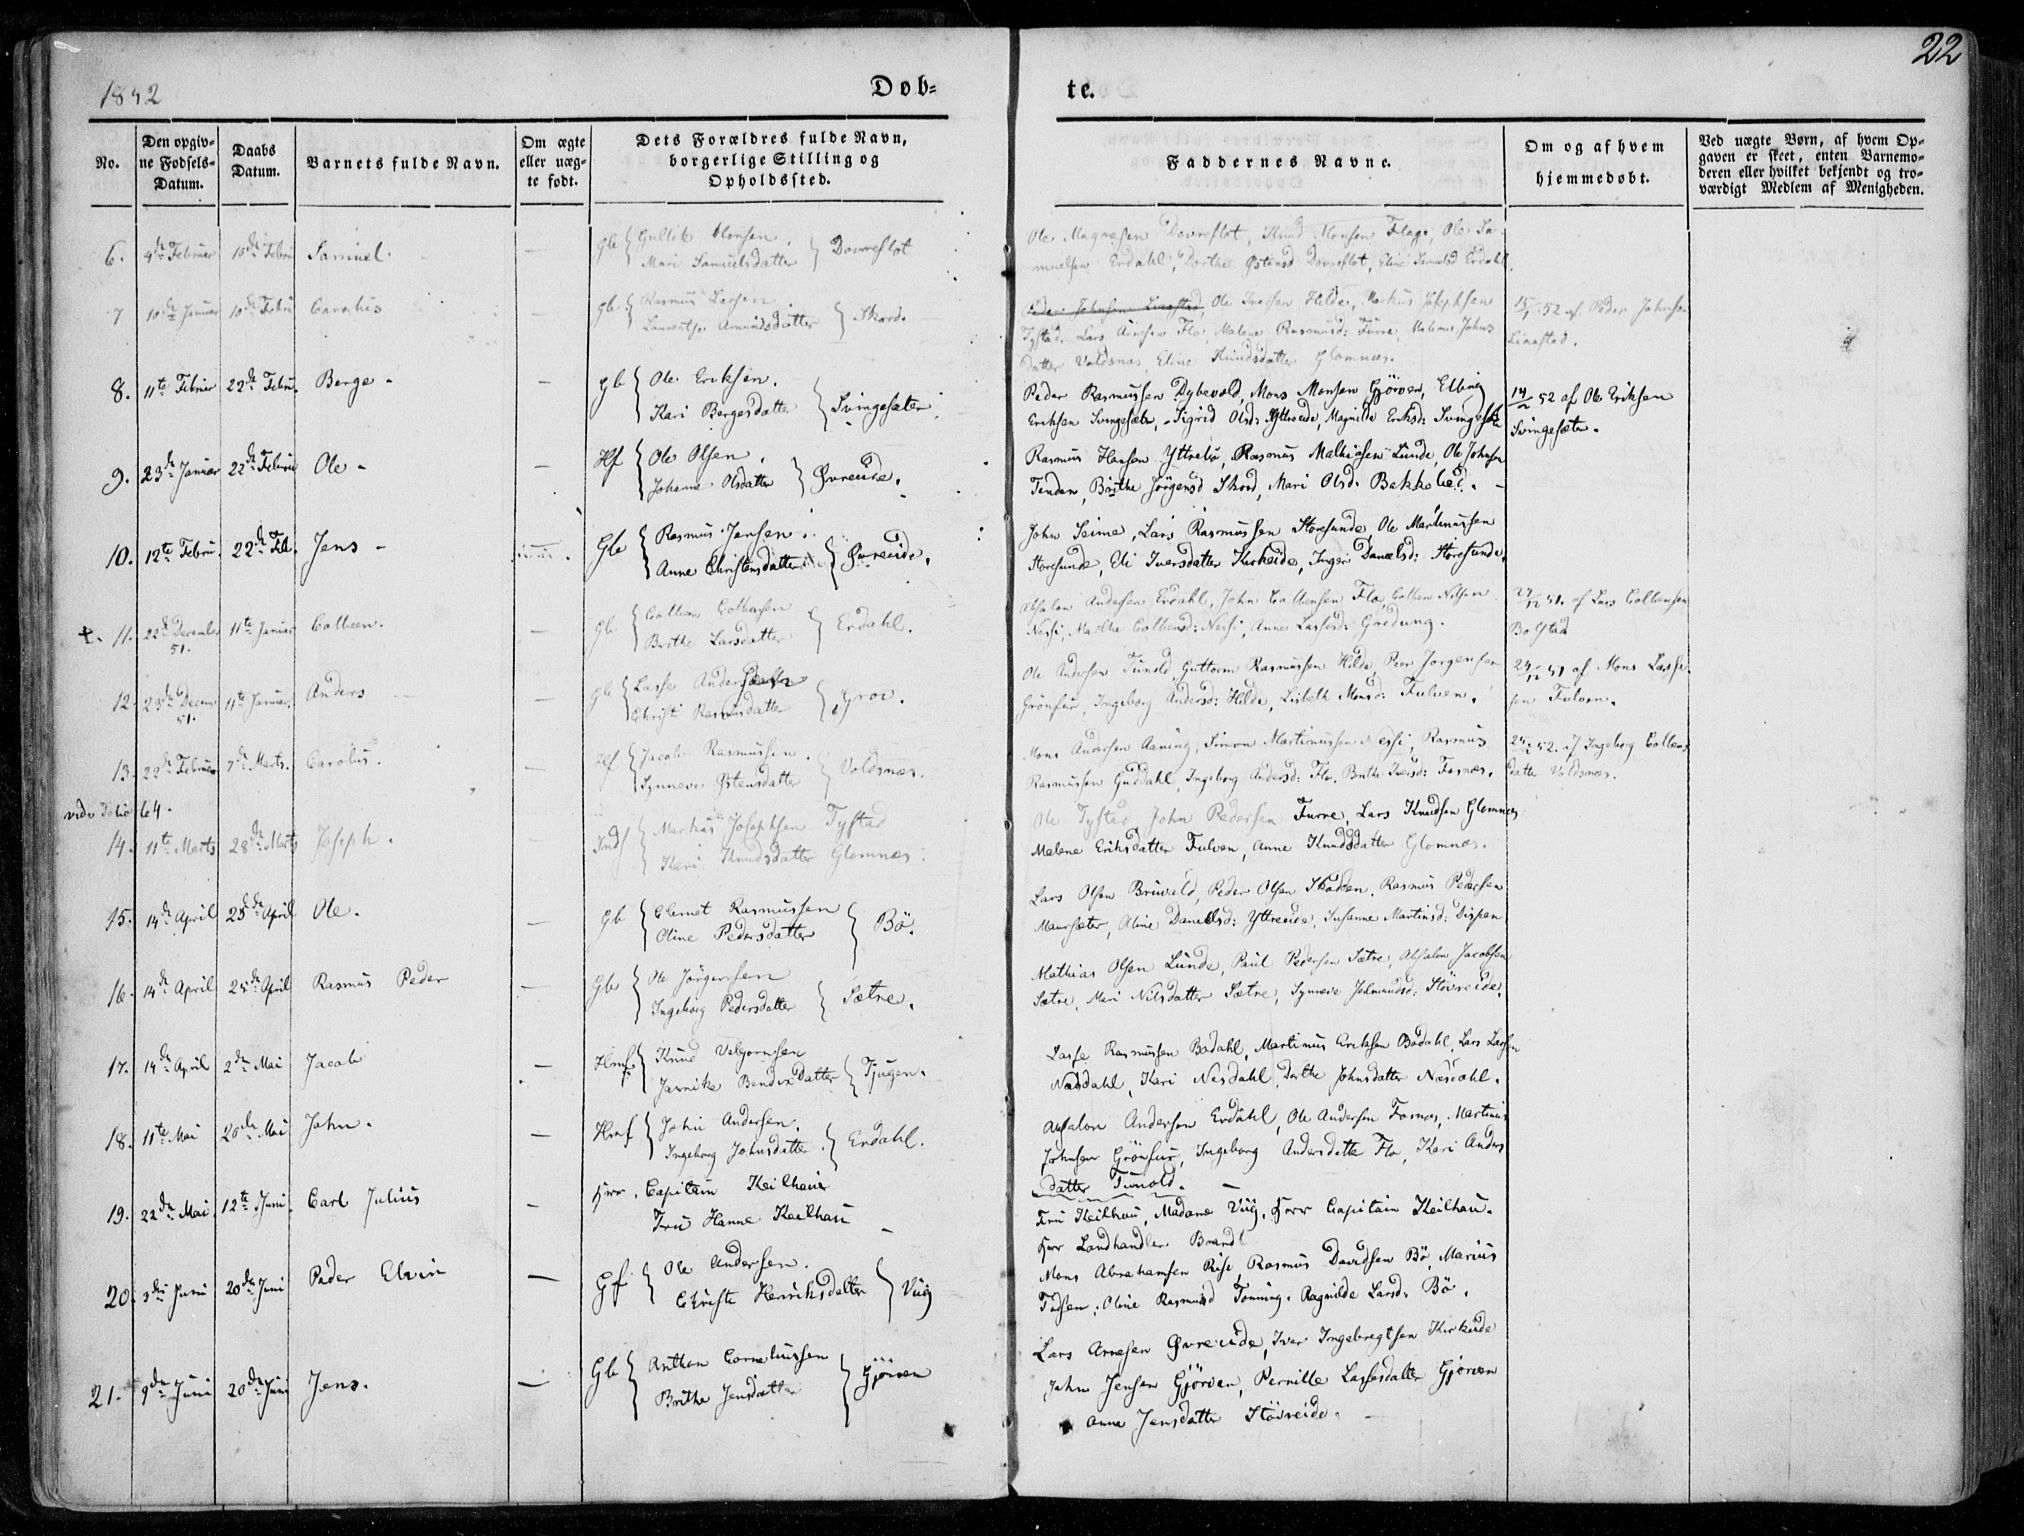 22
1852
Døb=
te.
No.
Den opgiv=
ne Fødsels=
Datum.
Daabs
Datum.
Barnets fulde Navn.
Om ægte
eller uæg=
te født.
Dets Forældres fulde Navn,
borgerlige Stilling og
Opholdssted.
Faddernes Navne.
Om og af hvem
hjemmedøbt.
Ved uægte Børn, af hvem Op=
gaven er skeet, enten Barnemo=
deren eller hvilket bekjendt og tro=
værdigt Medlem af Menigheden.
6. 4de Februar 10de Febru Samuel. — Gb Gullik Monsen.
Mari Samuelsdatter Dovreflot
Ole Magnesen Dovreflot, Knud Monsen Flage, Ole Sa-
muelsen Erdahl, Dorthe Østensd Dovreflot, Eline Samulsd Erdahl.
7 10de Januar 10de Febru Carolus — Gb Rasmus Larsen
Laurentse Amundsdatter Skord.
Peder Johnsen Liaastad Ole Iversen Hilde, Markus Josephsen
Tystad, Lars Arnesen Flo, Malene Rasmusd: Furre, Malene Johns
datter Voldsnæs, Eline Knudsdatter Glomnæs.
52 af Peder Johnsen
Liaastad.
8. 11te Februar 22de Febru. Berge - — Gb Ole Eriksen.
Kari Bergesdatter Svingesæter.
Peder Rasmussen Dybevold, Mons Monsen Gjörven, Elling
Eriksen Svingesæter, Sigrid Olsd: Yttreeide, Magnilde Eriksd: Svingesæter
14/2 52 af Ole Eriksen
Svingesæter.
9. 23de Januar 22de Februar Ole - — Hf Ole Olsen.
Johanne Olsdatter Øvreeide.
Rasmus Hansen Yttrebø, Rasmus Mathiesen Lunde, Ole Johnsen
Tenden, Brithe Jörgensd Skord, Mari Olsd: Bakkelied. -
10. 12te Febru. 22de Feb. Jens - Gb Rasmus Jensen.
Anne Christensdatter Øvreeide.
John Seime, Lars Rasmussen Storesunde, Ole Martinussen
Storesunde, Eli Iversdatter Kirkeide, Inger Danielsd: Storesunde.
11. 22de December
51. 11te Januar Colbeen. — Gb Colbeen Colbensen
Brithe Larsdatter Erdahl.
Absalon Andersen Erdahl, John Colbensen Flo, Colben Nilsen
Nessi, Marthe Colbensd: Nessi, Anne Lassesd: Gredung.
27/12 51. af Lars Colbensen
Bolstad
12. 23de Decem
51. 11te Januar Anders — Gb Lasse Andersen
Christi Rasmusdatter Grov.
Ole Andersen Tunold, Guttorm Rasmussen Hilde, Peer Jorgensen
Grönfur, Ingeborg Andersd: Hilde, Lisbeth Monsd: Fulven.
24/12 51 af Mons Lasse-
sen Fulven.
13. 22de Februar 7de Marts. Carolus. — Jacob Rasmussen.
Synneve Østensdatter Voldsnæs.
Mons Andersen Aaning, Simon Martinussen Nessi, Rasmus
Rasmussen Guddahl, Ingeborg Andersd: Flo, Brithe Iversd: Fosnæs.
25/2 52. af Ingeborg Colbens
datter Voldsnæs.
vide Folio 64.
14. 11te Marts 28de Marts Joseph. Markus Josephsen Tystad
Kari Knudsdatter Glomnæs.
Ole Tystad John Pedersen Furre, Lars Knudsen Glomnes
Malene Eriksdatter Fulven, Anne Knudsdatter Glomnæs.
15. 14de April 25de April Ole. — Gb Clemet Rasmussen
Oline Pedersdatter Bö.
Lars Olsen Bruvold, Peder Olsen Skaden, Rasmus Pedersen
Maursæter, Aline Danielsd: Yttreeide, Susanne Martinsd: Dispen
16. 14de April 25de April Rasmus Peder — Gb Ole Jörgensen
Ingeborg Pedersdatter Sætre.
Mathias Olsen Lunde, Paul Pedersen Sætre, Absalon Jacobsen
Sætre, Mari Nilsdatter Sætre, Synneve Jetmundsd: Stövreide.
17. 14de April 2de Mai Jacob — Hmf Knud Velgornsen
Jarnike Bendixdatter Tjugen.
Lasse Rasmussen Bödahl, Martinus Eriksen Bödahl, Lars Larsen
Næsdahl, Kari Nesdahl, Dorthe Johnsdatter Næsdahl.
18. 11te Mai 20de Mai John. — Hmf John Andersen.
Ingeborg Johnsdatter. Erdahl.
Absalon Andersen Erdahl, Ole Andersen Fosnæs, Martinus
Johnsen Grönfur, Ingeborg Andersdatter Flo, Kari Anders
datter Tunold. -
19. 22de Mai. 12te Juni. Carl Julius — Herr. Capitain Keilhau
Fru Hanne Keilhau -
Fru Keilhau, Madame Viig, Herr Capitain Keilhau.
Herr Landhandler Brandt
20. 3die Juni 20de Juni Peder Elvin — Gf Ole Andersen.
Christe Henriksdatter Viig
Mons Abrahamsen Rise, Rasmus Davidsen Bö, Marius
Todsen: Oline Rasmusd Tonning. Ragnilde Larsd: Bö.
21. 9de Juni 20de Juni Jens. — Gb Anthon Corneliussen
Brithe Jensdatter Gjörven
Lars Arnesen Øvreeide, Iver Ingebregtsen Kirkeide
John Jensen Gjörven, Pernille Lassesdatter Gjörven
Anne Jensdatter Stövreide. -